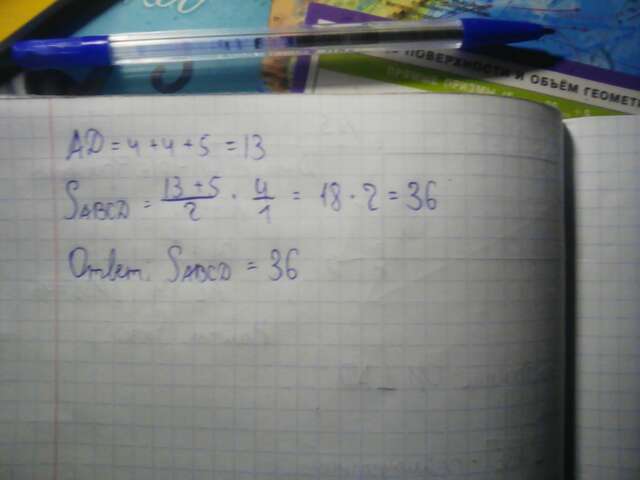 ПОВЕРХНОСТИ И ОБЪЁМ ГЕОМЕТ
ПРИЗМЫ
AD = 4 + 4 + 5 = 13
S_ABCD = (13 + 5)/2 · 4/1 = 18 · 2 = 36
Ответ: S_ABCD = 36